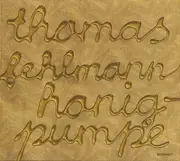 thomas
fehlmann
honig-
pumpe